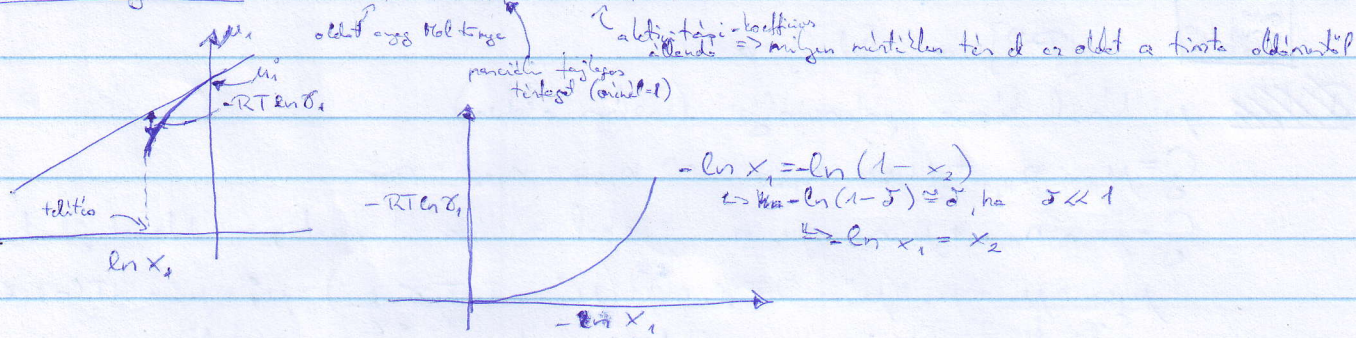 oldott anyag moltömege
aktivitási-koefficiens
állandó => milyen mértékben tér el az oldat a tiszta oldószertől
parciális fajlagos
térfogat (
μ₁
-RT ln γ₁
telítés
ln x₁
-RT ln γ₁
-ln x₁
-ln x₁ = -ln (1 - x₂)
↳ -ln (1 - δ) ≅ δ, ha δ << 1
↳ -ln x₁ = x₂